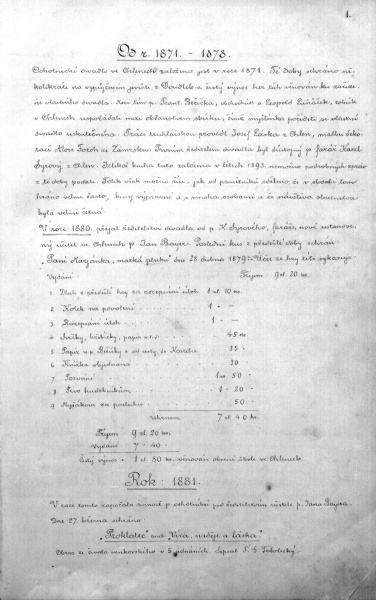 1.
Od r. 1871. - 1878.
Ochotnické divadlo ve Chlenech založeno jest v roce 1871. Té doby sehráno ně-
kolikráte na vypůjčeném jevišti z Doudleb a čistý výnos her těch věnován ku zaříze-
ní vlastního divadla. p. Frant. Bečička, obchodník a Leopold rolník
v Chlenech uspořádali mezi obyvatelstvem sbírku, čímž myšlénka poříditi si vlastní
divadlo uskutečněna. Práce truhlářskou provedl Josef Láska z Chlen, malbu deko-
rací Alois ze Žamberka. Prvním ředitelem divadla byl důstojný p. farář Karel
Syrový z Chlen. Jelikož kniha tato založena v letech 1893. nemožno podrobných zpráv
z té doby podati. Tolik však možno říci, jak od pamětníků sděleno, že v období tom
hráno velmi často, kusy výpravné a s mnoha osobami a že návštěva obecenstva
byla velmi četná
V roce 1880. přejal ředitelství divadla od p. K. Syrového, faráře, nově ustanove-
ný učitel ve Chlenech p. Jan Bayer. Poslední kus z předešlé doby sehrán
"Paní Marjánka, matka pluku" dne 28 dubna 1879. Účet ze hry této vykazuje
Vydání: Příjem 9 zl. 20 kr.
1 Dluh z předešlé hry za rozepsání úloh 1 zl. 10 kr.
2 Kolek na povolení 1 " — "
3 Rozepsání úloh 1 " — "
4 Svíčky, knoflíky, papír a t. d. 45 kr.
5 Papír u p. Bečičky a od cesty do Kostelce 35 "
6 Knížka objednaná 30 "
7 Pozvání 1 " 50 "
8 Pivo hudebníkům 1 " 20 "
9 za posluhu 50 "
Úhrnem 7 zl 40 kr.
Příjem 9 zl. 20 kr.
Vydání 7 " 40 "
Čistý výnos 1 zl. 80 kr. věnován obecní škole ve Chlenech.
Rok: 1881.
V roce tomto započala činnost p. ochotníků pod ředitelstvím učitele p. Jana Bayera.
Dne 27. března sehráno
"Proklatec" aneb "Víra, naděje a láska"
Obraz ze života venkovského v 5 jednáních. Sepsal